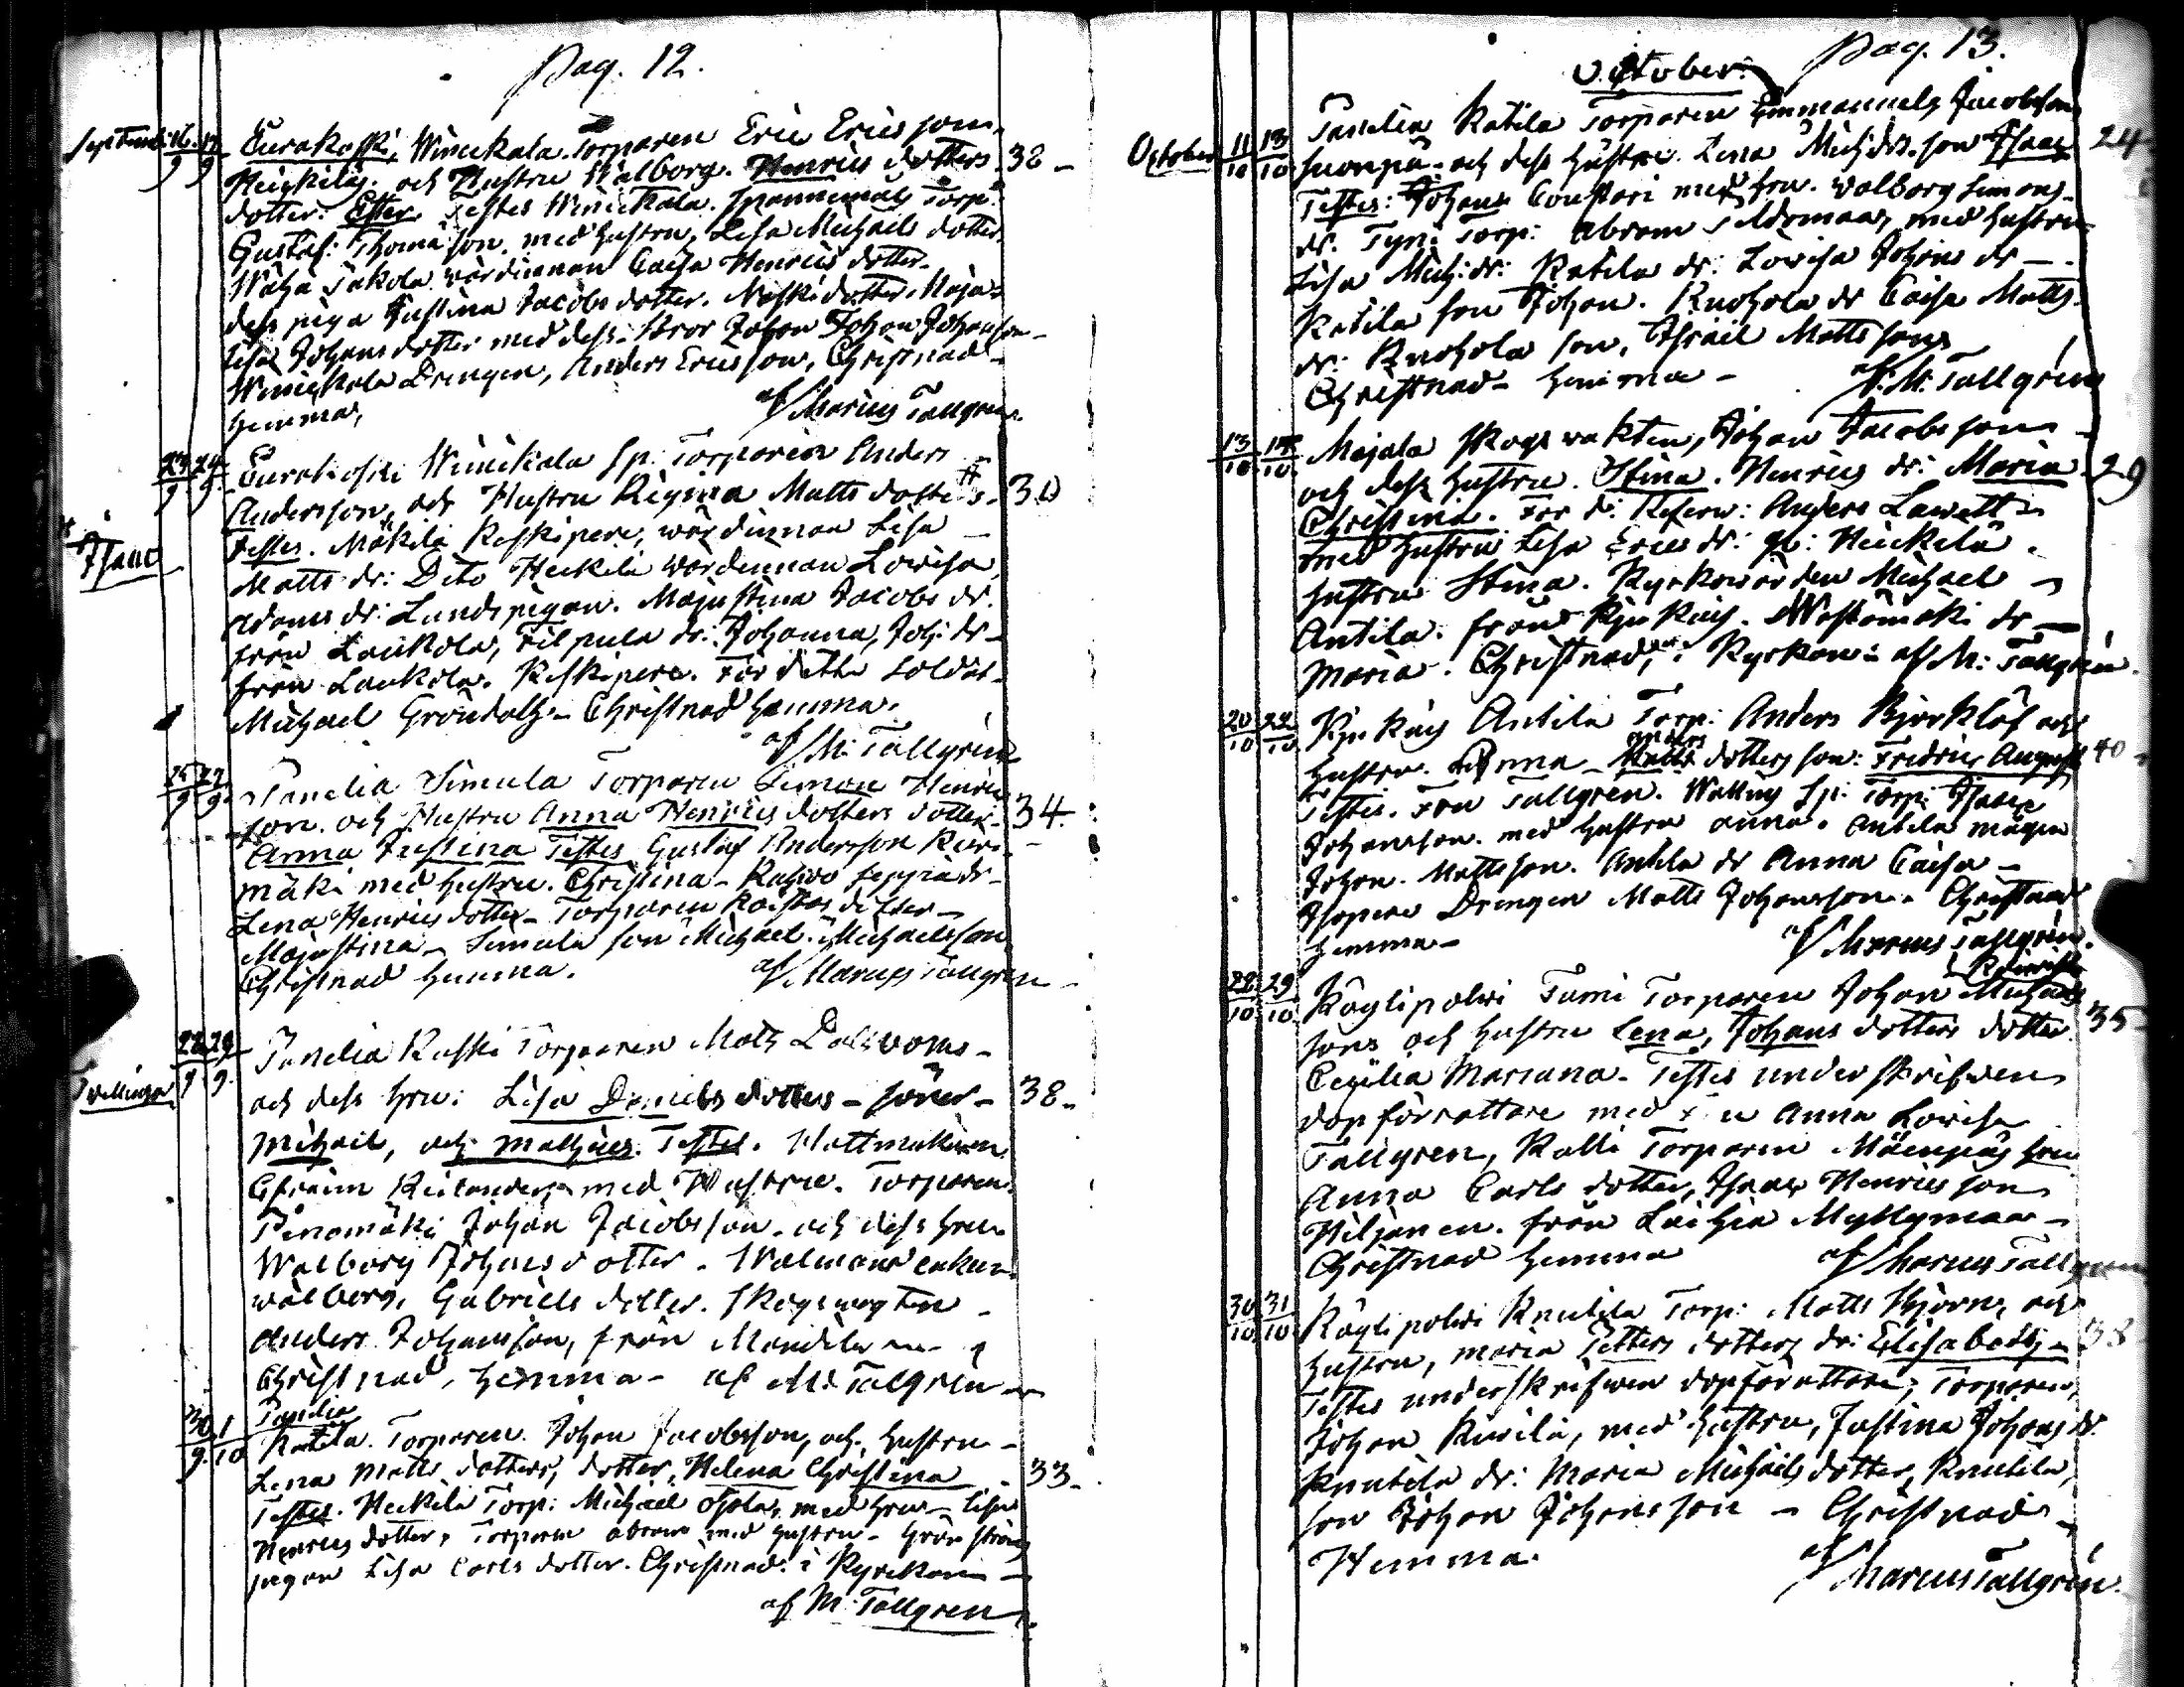 Pag. 12.
Septemb: 16. 17
9 9
Eurakoski, Winickala Torparen Eric Ericsson
och Hustru Walborg Henrics dotters 38 -
dotter: Ester. Testes Winickala
Gustaf: Thomasson, med hustru, Lisa Michaels dotter
wärdinnan Caisa Henrics dotter
dess piga Justina Jacobs dotter. Maja-
Lisa Johans dotter med dess bror Johan Johan Johansson
Winickala Drengen, Anders Ericsson, Christnad
hemma,
af Marcus Tallgren
23 24
9 9
Eurakoski Winickala Sp: Torparen Anders
Andersson, och Hustru Regina Matts dotters # 30
# Isaac
Testes. Mäkilä Keskipere, wärdinnan Lisa
Matts dr: Dito Heikilä wärdinnan Lowisa
Adams dr: Lundspigan. Majastina Jacobs dr.
från Laukola, Filpula dr: Johanna, Joh: dr
från Laukola. Keskipere. För detta Soldat
Michael Gröndahl - Christnad hemma.
af M: Tallgren
25 27
9 9
Panelia Simula Torparen Simon Henric
son och Hustru Anna Henrics dotters dotter 34.
Anna Justina Testes Gustaf Andersson
mäki med hustru. Christina - Seppä dr
Lena Henrics dotter - Torparen dotter
Majastina - Simula son Michael. Michaelsson
Christnad hemma. af Marcus Tallgren
28 29
9 9
Twillingar
Panelia Koski Torparen Mats
och dess hru: Lisa Daniels dotters - söner - 38 -
Michael, och Mathias. Testes. Hattmakaren
Efraim med Hustru. Torparen
Pinomäki Johan Jacobsson, och dess hru
Walborg Johans dotter - enkan
Walborg, Gabriels dotter. Skogswagten
Anders Johansson, från
Christnad, hemma - af M: Talgren
30 1
9 10
Panelia
Katila. Torparen. Johan Jacobsson, och hustru
Lena Matts dotters, dotter, Helena Christina 33 -
Testes. Heikilä Torp: Michael Ojala, med hru - Lisa
Henrics dotter, Torparen Abram med hustru -
pigan Lisa Carls dotter. Christnad i Kyrckan
af M: Tallgren
October: Pag. 13.
October 11 13
10 10
Panelia Katila Torparen Emmanuels Jacobsson
och dess hustru. Lena Mich: drs. son Isaac 24
Testes: Johans med hru. Walborg Simons
dr. Tyni Torp: Abram med hustru
Lisa Mich: dr: Katila dr: Lowisa Johans dr
Katila son Johan. Knohola dr Caisa Matts
dr: Knohola son, Israel Mattsson
Christnad - hemma - af M: Tallgren
13 14
10 10
Majala skogs wakten, Johan Jacobsson
och dess hustru. Stina. Henrics dr: Maria 29
Christina. För d: Reserw: Anders
med hustru Lisa Erics dr: Heickilä
hustru Stina. Kyrkowärden Michael
Antila. från Kjukais. dr
Maria. Christnad, i Kyrkan: af M: Tallgren
20 22
10 10
Kjukais Antila Torp: Anders Björklöf och
hustru. Anna Matts Anders dotters son: Fredric August 40
Testes. Fru Tallgren. Sp: Torp: Isaac
Johansson. med hustru Anna. Antila mågen
Johan. Mattsson. Antila dr Anna Caisa -
Isopere Drengen Matts Johansson. Christnad
hemma - af Marcus Tallgren.
28 29
10 10
Köylipolwi Tomi Torparen Johan Michaels
son och hustru Lena, Johans dotters dotter 35
Cecilia Mariana. Testes underskrifwen
dopförrättare med Anna Lowisa
Tallgren, Kalli Torparen Mäenpäs hru
Anna Carls dotter, Isaac Henricsson
Wiljanen. från Laihia Myllymaa -
Christnad hemma af Marcus Tallgren
30 31
10 10
Köylipolwi Knutila Torp: Matts Björn, och
hustru, Maria Petters dotters dr: Elisabeth 38
Testes underskrifwen dopförättare; Torparen,
Johan Kiwilä, med hustru, Justina Johans dr.
Knutila dr: Maria Michaels dotter, Knutila,
son Johan Johansson - Christnad
Hemma.
af Marcus Tallgren.